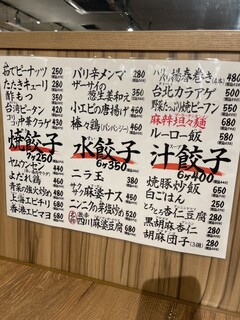 ゆでピーナッツ 250
たたききゅうり 350
酢もつ 350
台湾ピータン 240
コリコリ中華クラゲ 350
焼餃子
7ヶ250
ヤムウンセン
よだれ鶏 680
青菜の強火炒め
上海エビチリ 680
香港エビマヨ 680
パリ辛メンマ
ザーサイの葱生姜和え 350
小エビの唐揚げ
棒々鶏(バンバンジー)
水餃子
6ヶ350
ニラ玉
サク麻婆ナス 450
ニンニクの芽塩炒め
四川麻婆豆腐 680
パリパリ揚春巻き(4本) 480
台北カラアゲ 500
野菜たっぷり焼ビーフン 550
麻粹担々麺 680
ルーロー飯 580
汁餃子
スープ
6ヶ400
焼豚炒飯 650
白ごはん
とろとろ杏仁豆腐 280
黒胡麻杏仁
胡麻団子(3個) 280